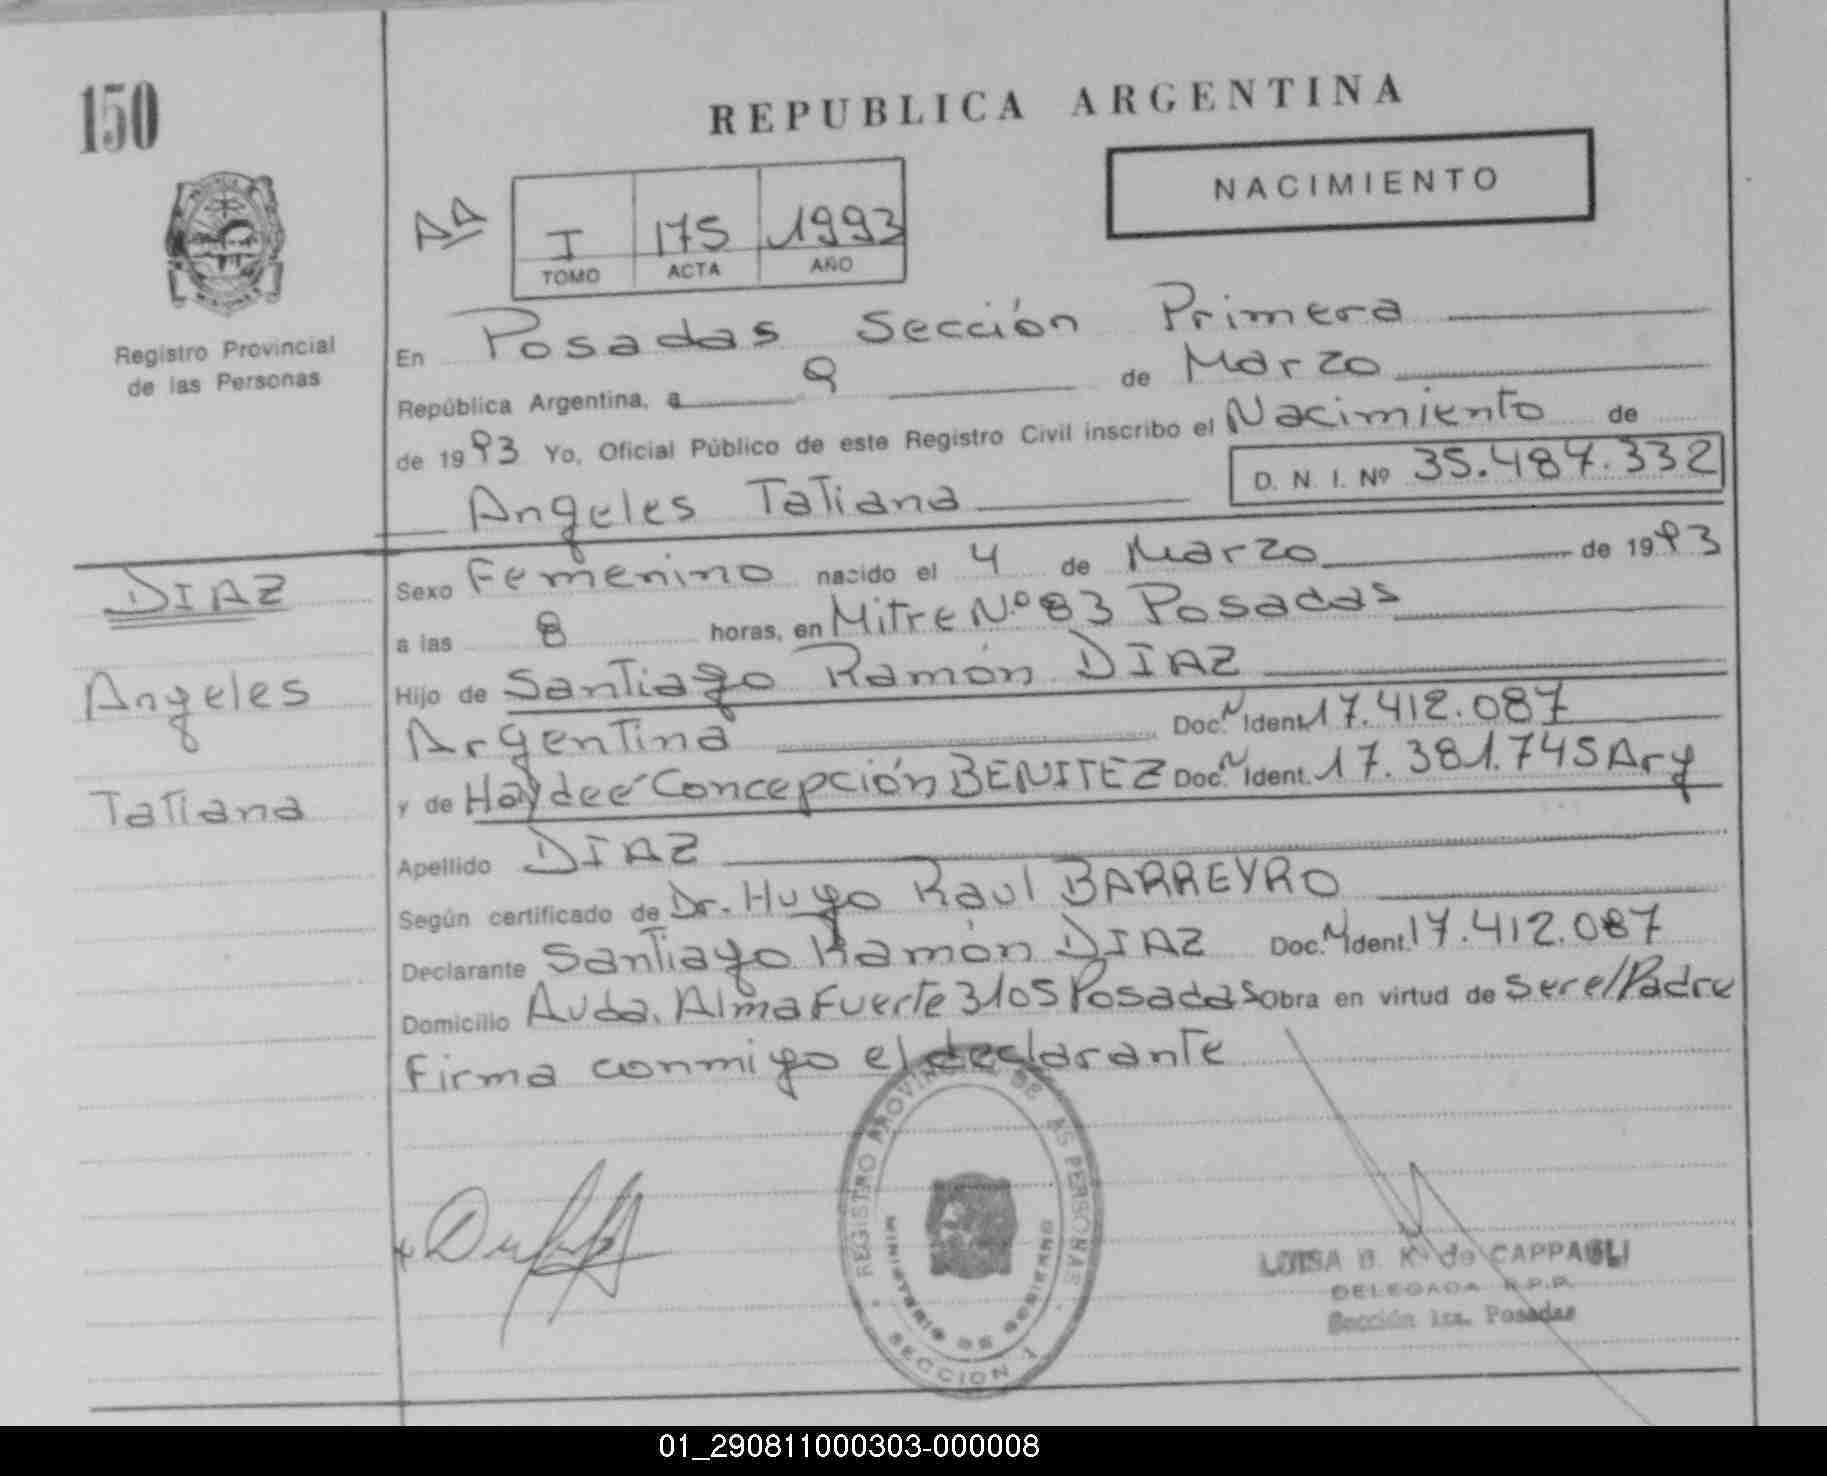 150
REPUBLICA ARGENTINA
NACIMIENTO
I 175 1993
TOMO ACTA AÑO
Registro Provincial
de las Personas
En Posadas Sección Primera
República Argentina, a 9 de Marzo
de 1993 Yo, Oficial Público de este Registro Civil inscribo el Nacimiento de
D. N. I. Nº 35.487.332
Angeles Tatiana
DIAZ
Angeles
Tatiana
Sexo Femenino nacido el 4 de Marzo de 1993
a las 8 horas, en Mitre Nº 83 Posadas
Hijo de Santiago Ramón DIAZ
Argentina Doc. N Ident. 17.412.087
y de Haydeé Concepción BENITEZ Doc. N Ident. 17.381.745 Arg
Apellido DIAZ
Según certificado de Dr. Hugo Raul BARREYRO
Declarante Santiago Ramón DIAZ Doc. N Ident. 17.412.087
Domicilio Avda. Alma Fuerte 3105 Posadas Obra en virtud de Ser el Padre
Firma conmigo el declarante
REGISTRO PROVINCIAL DE LAS PERSONAS
MINISTERIO DE GOBIERNO
SECCION 1
LUISA B. K. de CAPPAGLI
DELEGADA R.P.P.
Sección 1ra. Posadas
01_290811000303-000008